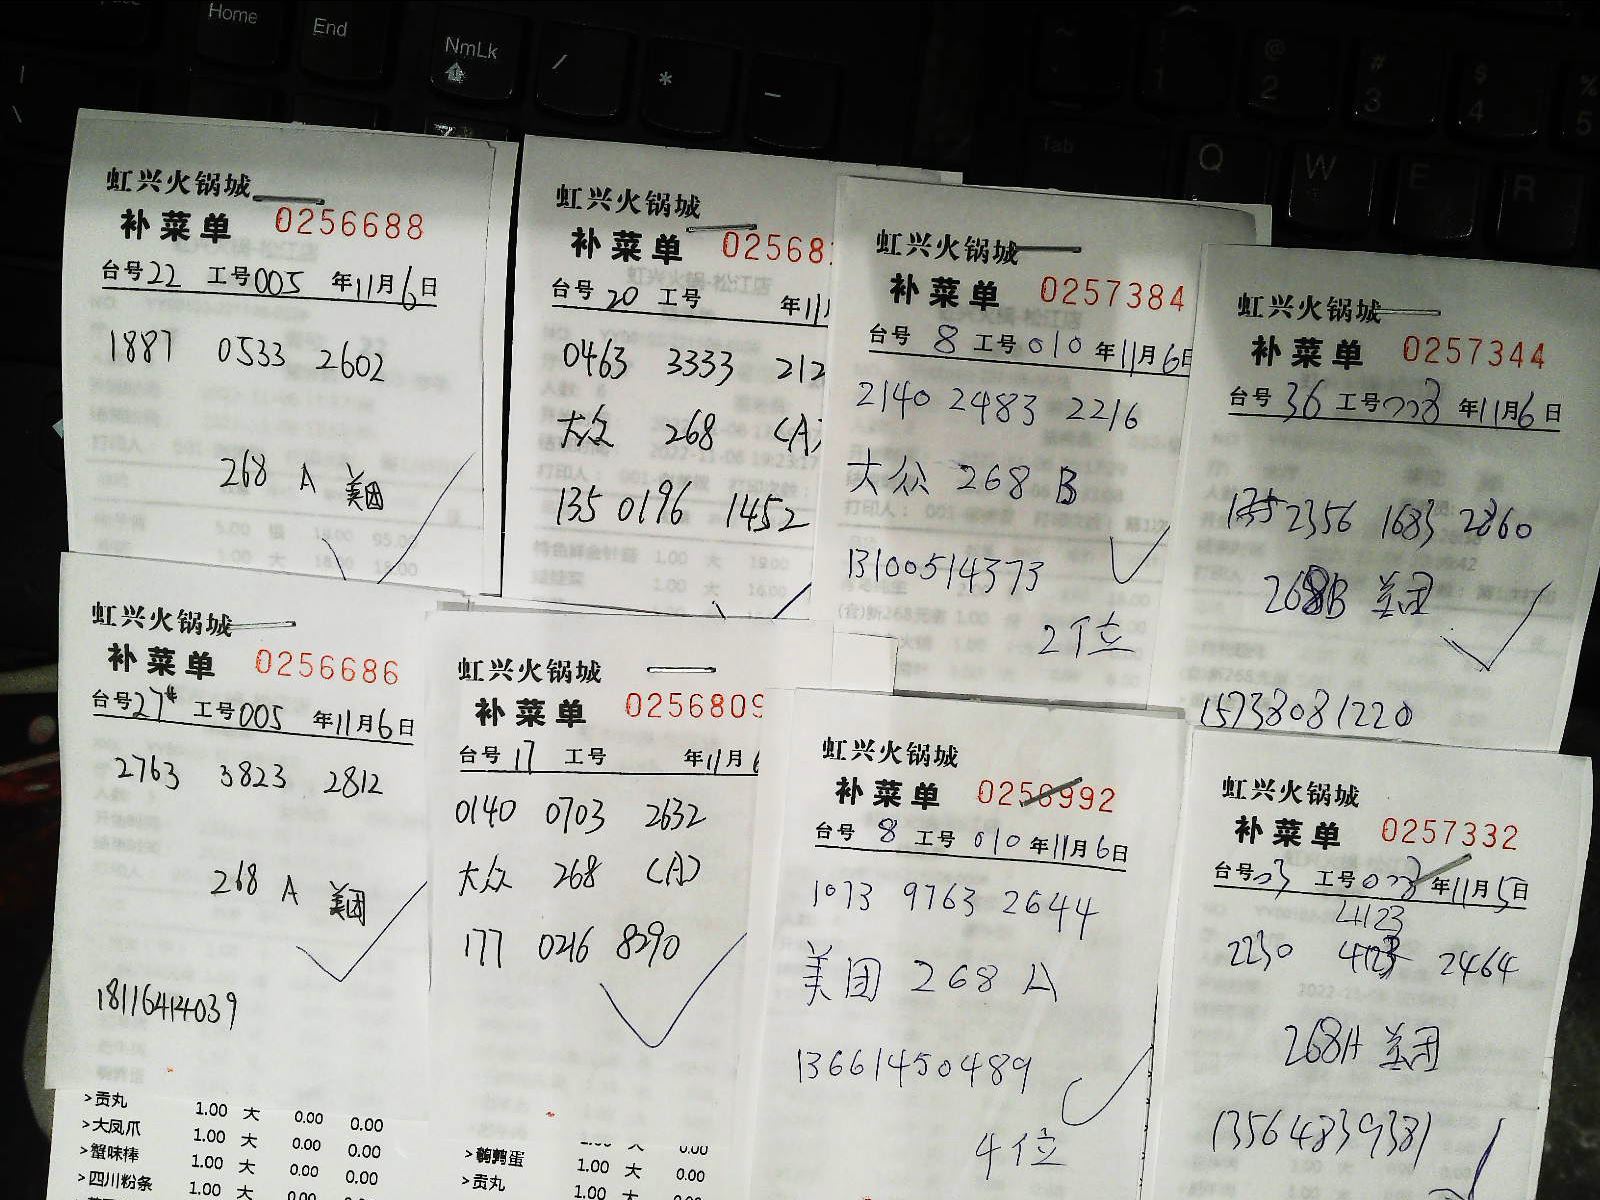 Home
End
NmLk
/
*
-
Tab
@
2
#
3
$
4
%
5
1
Q
W
E
R
虹兴火锅城
补菜单 0256688
台号22 工号005 年11月6日
1887 0533 2602
268 A 美团
虹兴火锅城
补菜单 025681
台号20 工号 年11
0463 3333 212
大众 268 (A)
135 0196 1452
虹兴火锅城
补菜单 0257384
台号 8 工号010年11月6日
2140 2483 2216
大众 268 B
13100514373
2位
虹兴火锅城
补菜单 0257344
台号36 工号003 年11月6日
2356 1683 2860
268B 美团
15738081220
虹兴火锅城
补菜单 0256686
台号27# 工号005 年11月6日
2763 3823 2812
268 A 美团
18116414039
>贡丸 1.00 大 0.00 0.00
>大凤爪 1.00 大 0.00 0.00
>蟹味棒 1.00 大 0.00 0.00
>四川粉条 1.00 大 0.00 0.00
虹兴火锅城
补菜单 0256809
台号17 工号 年11月6
0140 0703 2632
大众 268 (A)
177 0216 8290
>鹌鹑蛋 1.00 大 0.00
>贡丸 1.00 大 0.00
虹兴火锅城
补菜单 0256992
台号 8 工号 010年11月6日
1073 9763 2644
美团 268 A
13661450489
4位
虹兴火锅城
补菜单 0257332
台号03 工号003年11月5日
4123
2230 2464
268A 美团
13564839381